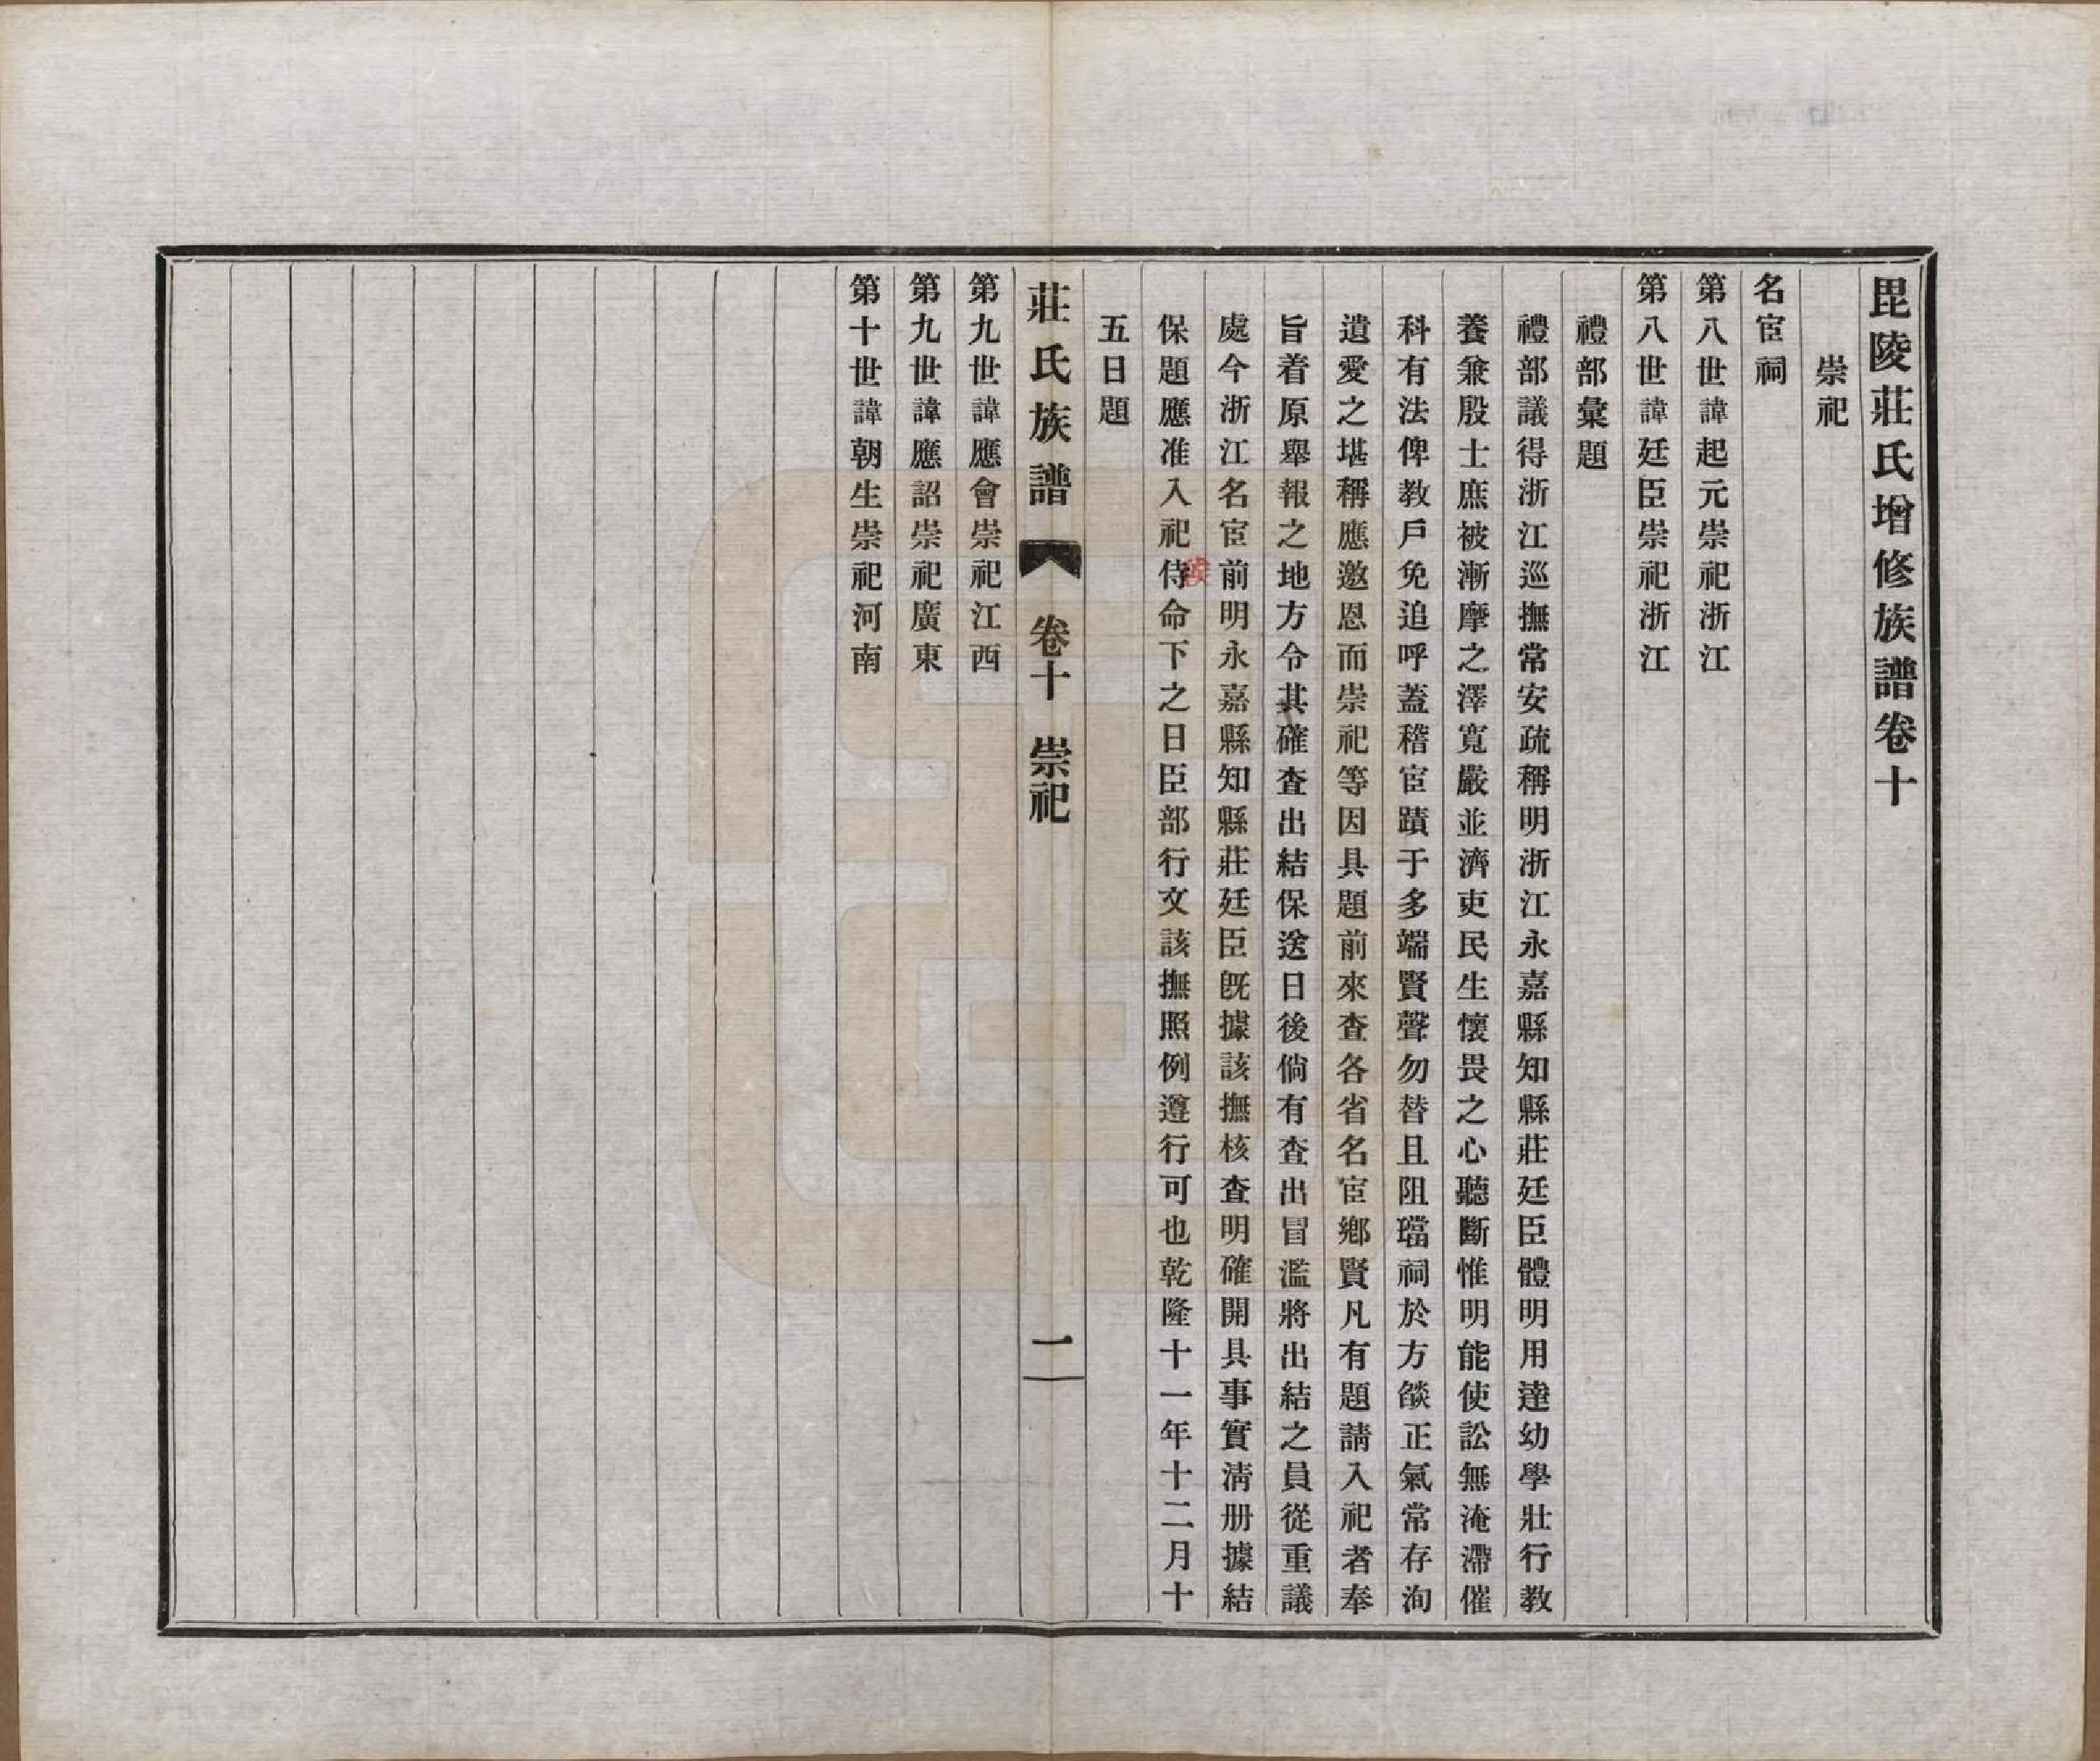 毘陵莊氏增修族譜卷十
崇祀
名宦祠
第八世諱起元崇祀浙江
第八世諱廷臣崇祀浙江
禮部彙題
禮部議得浙江巡撫常安疏稱明浙江永嘉縣知縣莊廷臣體明用達幼學壯行教
養兼殷士庶被漸摩之澤寬嚴並濟吏民生懷畏之心聽斷惟明能使訟無淹滯催
科有法俾教戶免追呼蓋稽宦蹟于多端賢聲勿替且阻璫祠於方燄正氣常存洵
遺愛之堪稱應邀恩而崇祀等因具題前來查各省名宦鄉賢凡有題請入祀者奉
旨着原舉報之地方令其確查出結保送日後倘有查出冒濫將出結之員從重議
處今浙江名宦前明永嘉縣知縣莊廷臣旣據該撫核查明確開具事實淸册據結
保題應准入祀侍命下之日臣部行文該撫照例遵行可也乾隆十一年十二月十
五日題
莊氏族譜 卷十 崇祀 一
第九世諱應會崇祀江西
第九世諱應詔崇祀廣東
第十世諱朝生崇祀河南